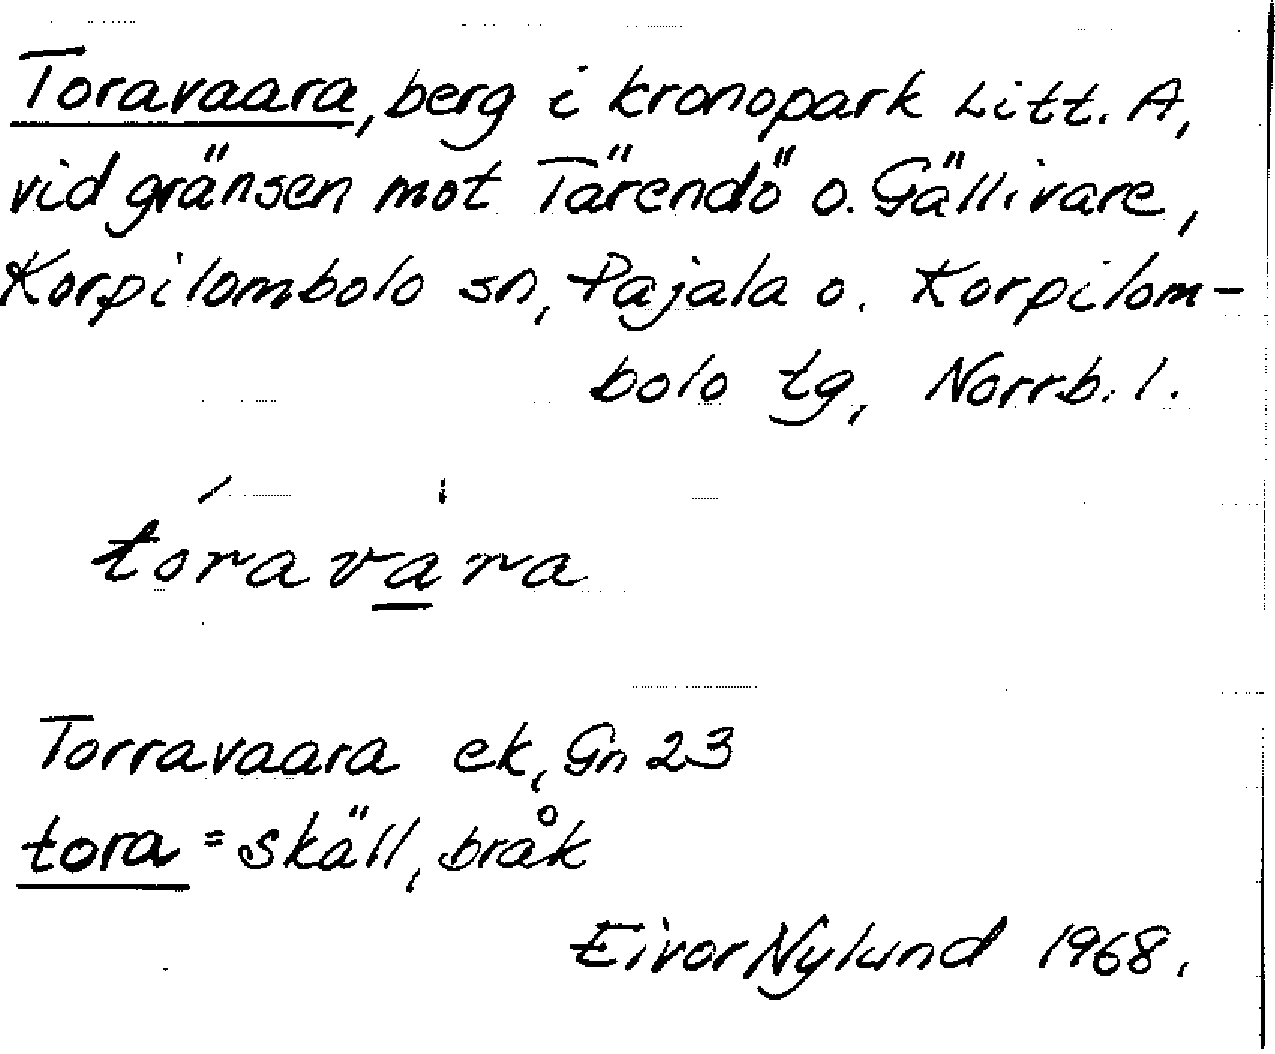 Toravaara, berg i kronopark Litt. A,
vid gränsen mot Tärendö o. Gällivare,
Korpilombolo sn, Pajala o. Korpilom-
bolo tg, Norrb. l.
toravara
Torravaara ek, Gn 23
tora = skäll, bråk
Eivor Nylund 1968.